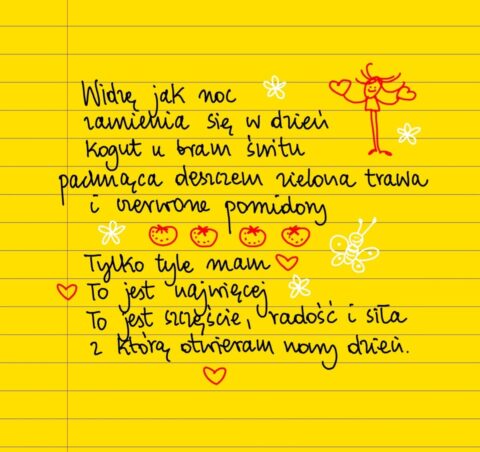 Widzę jak noc
zamienia się w dzień
Kogut u bram świtu
pachnąca deszczem zielona trawa
i czerwone pomidory
Tylko tyle mam
To jest najwięcej
To jest szczęście, radość i siła
z którą otwieram nowy dzień.